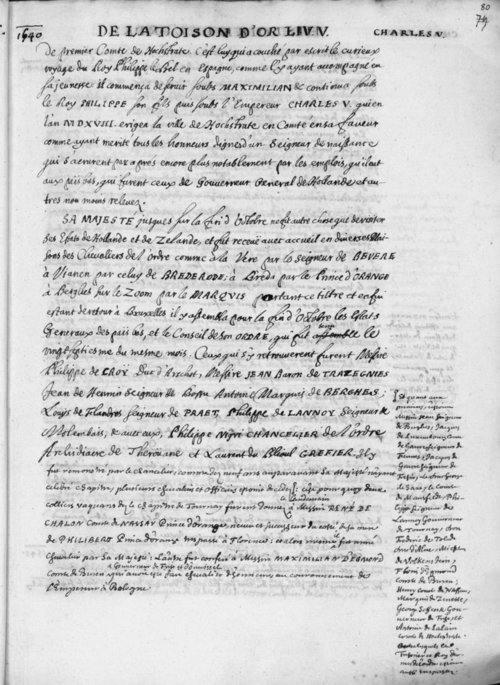 80
79
1540
DE LA TOISON D'OR LIV. V.
CHARLES V.
de premier Comte de Hochstrate. C'est luy qui a couché par escrit le curieux
voyage du Roy Philippe le bel en Espagne, comme l'y ayant accompagné en
sa jeunesse il commença de servir soubs MAXIMILIAN & continua soubs
le Roy PHILIPPE son fils puis soubs l'Empereur CHARLES V. qui en
l'an MDXVIII. erigea la ville de Hochstrate en Comté en sa faveur
comme ayant merité tous les honneurs dignes d'un Seigneur de naissance
qui s'accrurent par apres encore plus notablement par les emplois, qu'il eut
aux païs bas, qui furent ceux de Gouverneur General de Hollande et au-
tres non moins relevez.
SA MAJESTÉ jusques sur la fin d'Octobre ne fit autre chose que de visiter
ses Estats de Hollande et de Zelande, et fut receue avec accueil en diverses Mai-
sons des Chevalliers de l'ordre comme à la Vere par le Seigneur de BEVERE
à Vianen par celuy de BREDERODE, à Breda par le Prince d'ORANGE
à Berghes sur le Zoom par le MARQVIS portant ce tiltre et enfin
estant de retour à Bruxelles il y assembla pour la fin d'Octobre les Estats
Generaux des païs bas, et le Conseil de son ORDRE, qui fut assemblé le
tenu
vingt sixiesme du mesme mois. Ceux qui s'y retrouverent furent Messire
Philippe de CROY Duc d'Arschot, Messire JEAN Baron de TRAZEGNIES
Jean de Hennin Seigneur de Bossu Antoine Marquis de BERGHES;
Louys de Flandres seigneur de PRAET, Philippe de LANNOY Seigneur de
Molembais, & auec eux, Philippe Nigri CHANCELIER de l'ordre
Archidiacre de Therouane et Laurent du Blioul GREFIER, Il y
fut remonstré par le Chancelier, comme dez neuf ans auparavant Sa Majesté n'ayant
celebré chapitre, plusieurs chevaliers et officiers
colliers vaquans dez le chapitre de Tournay furent donnez, à Messire RENÉ DE
le lendemain
CHALON Comte de NASSAV Prince d'orange, neveu et successeur du costé de sa mere
de PHILIBERT Prince d'orange trespassé à Florence; et alors mesme fut armé
chevalier par Sa Majesté: L'autre fut conferé à Messire MAXIMILIAN D'EGMOND
Comte de Buren Gouverneur de Frise et d'Overissel
qui avoit esté faict chevalier d'honneur au couronnement de
l'Empereur à Bologne.
Messire Jean Seigneur
Jacques de
Luxembourg Comte
de Gavre,
Georges
Comte
de Mansfelt, Phi-
lippe Seigneur de
Lannoy Gouverneur
de Tournay;
de Tole-
do
Comte de Buren;
Henry Comte de Nassau,
Marquis de Zenette,
George Schenck Gou-
verneur de Frise, et
Antoine de Lalain
Comte de Hochstrate.